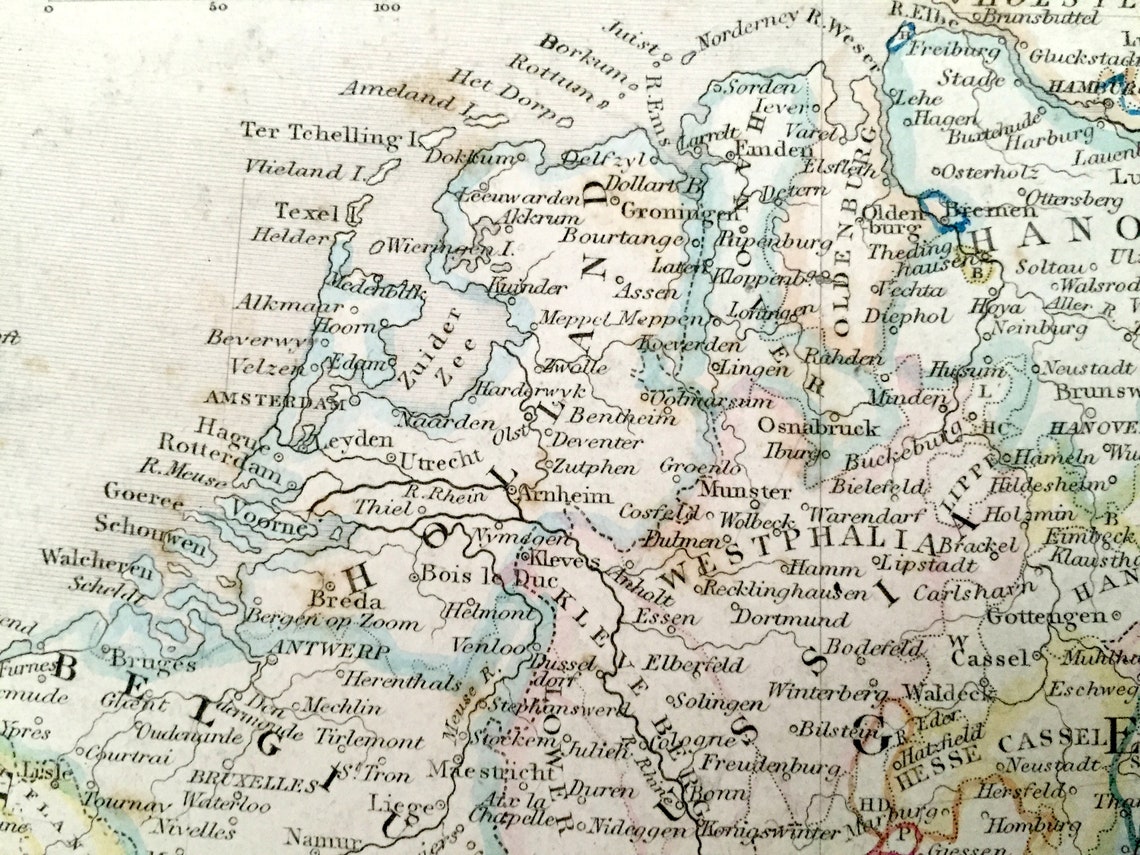 0 50 100
R. Elbe
Brunsbuttel
Juist
Norderney
R. Weser
Freiburg
Gluckstad
Borkum
Rottum
R. Ems
Stade
HAMBURG
Het Dorp
Ameland I.
Sorden
Iever
Lehe
Hagen
Buxtehude
Harburg
Ter Tchelling I.
Varel
Larrelt
Emden
Lauen
Dokkum
Delfzyl
Vlieland I.
Elsfleth
Osterholz
Lu
Dollart B.
Detern
Leeuwarden
Groningen
Ottersberg
Texel I.
Akkrum
Olden
burg
Bremen
Helder
Wieringen I.
Bourtange
Papenburg
OLDENBURG
Theding
hausen
B
HANO
Ulz
Laten
Kloppenbg.
Soltau
Medenblik
Kuinder
Assen
Vechta
Walsrod
Alkmaar
Hoya
Aller R.
Hoorn
Zuider
Zee
Meppel
Meppen
Loningen
Diephol
Neinburg
Beverwy
Koeverden
Rahden
Velzen
Edam
Zwolle
Lingen
Husum
Neustadt
AMSTERDAM
Harderwyk
Ootmarsum
Minden
L
Brunsw
Naarden
Olst
Bentheim
Osnabruck
HC
HANOVER
Hague
Leyden
Deventer
Iburg
Buckeburg
Hameln
Wu
Rotterdam
Utrecht
Zutphen
Groenlo
LIPPE
R. Meuse
R. Rhein
Arnheim
Munster
Bielefeld
Hildesheim
Goeree
Voorne
Thiel
Cosfeld
Wolbeck
Warendarf
Holzmin
B
Schouwen
Nymegen
Dulmen
WESTPHALIA
Brackel
Eimbeck
Klausth
Walcheren
Kleves
Hamm
Lipstadt
HAN
Scheldt
Bois le Duc
Anholt
Recklinghausen
Carlsharn
Breda
HOLLAND
HANOVER
KLEVE BERG
Gottengen
Bergen op Zoom
Helmont
Essen
Dortmund
end
Venloo
Bodefeld
W
Furnes
Bruges
ANTWERP
Dussel
dorf
Elberfeld
Cassel
Muhlha
emude
Herenthals
Meuse R.
Winterberg
Waldeck
Eschweg
Ghent
Den
dermonde
Mechlin
Stephanswerd
Solingen
Ypres
Oudenarde
Tirlemont
Stockem
Julich
Cologne
Bilstein
R. Eder
Hatzfield
CASSEL
Courtrai
LOWER
Freudenburg
HESSE
Neustadt
Lisle
BRUXELLES
St. Tron
Maestricht
R. Rhine
Duren
Bonn
Hersfeld
Tournay
Waterloo
Liege
Aix la
Chapelle
HD
Marburg
Tha
FLA
Nivelles
Nideggen
Konigswinter
P
Homburg
Namur
Giessen
BELGIU
SSIA
GE